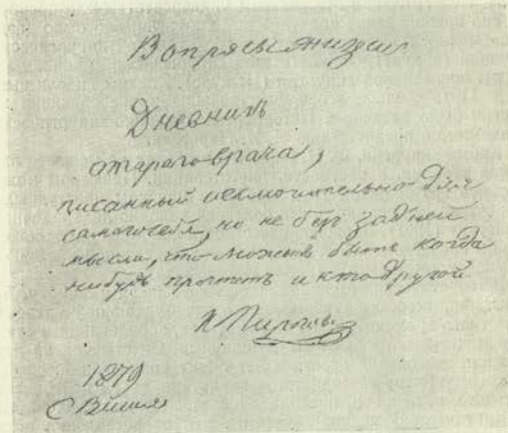 Вопросы жизни
Дневникъ
стараго врача,
писанный исключительно для
самого себя, но не безъ задней
мысли, что можетъ быть когда
нибудь прочтетъ и кто другой
Н Пирогов
1879
С Вишня